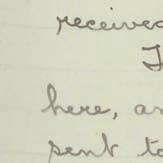 received
here, an
sent to